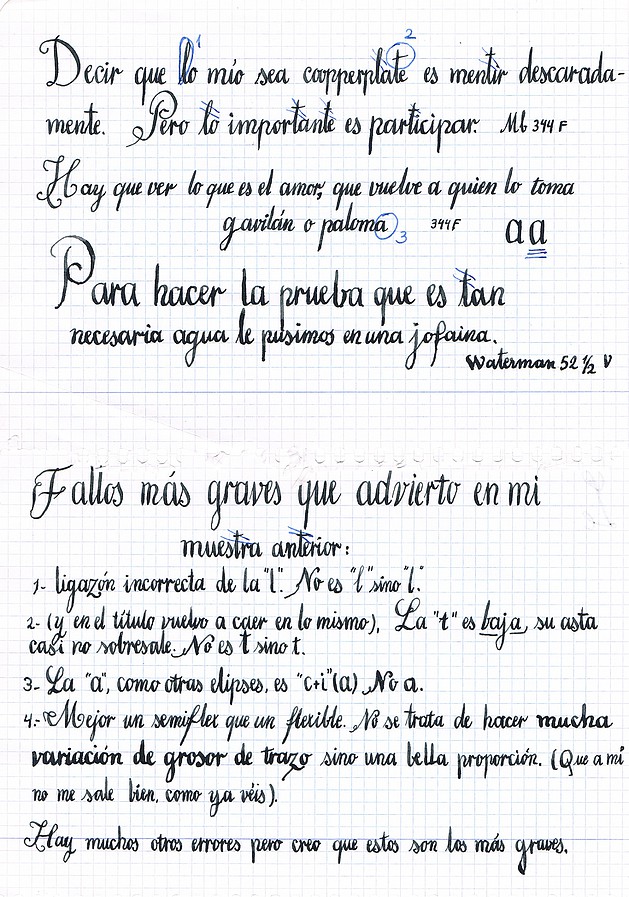 Decir que lo mío sea coopperplate es mentir descarada-
1
2
mente. Pero lo importante es participar. Mb 344 F
Hay que ver lo que es el amor, que vuelve a quien lo toma
gavilán o paloma 3 344F aa
Para hacer la prueba que es tan
necesaria agua le pusimos en una jofaina.
Waterman 52 ½ V
Fallos más graves que advierto en mi
muestra anterior:
1- ligazón incorrecta de la "l". No es "l" sino "l".
2- (y en el título vuelvo a caer en lo mismo). La "t" es baja, su asta
casi no sobresale. No es t sino t.
3- La "a", como otras elipses, es "c+i" (a) No a.
4.- Mejor un semiflex que un flexible. No se trata de hacer mucha
variación de grosor de trazo sino una bella proporción. (Que a mí
no me sale bien, como ya véis).
Hay muchos otros errores pero creo que estos son los más graves.